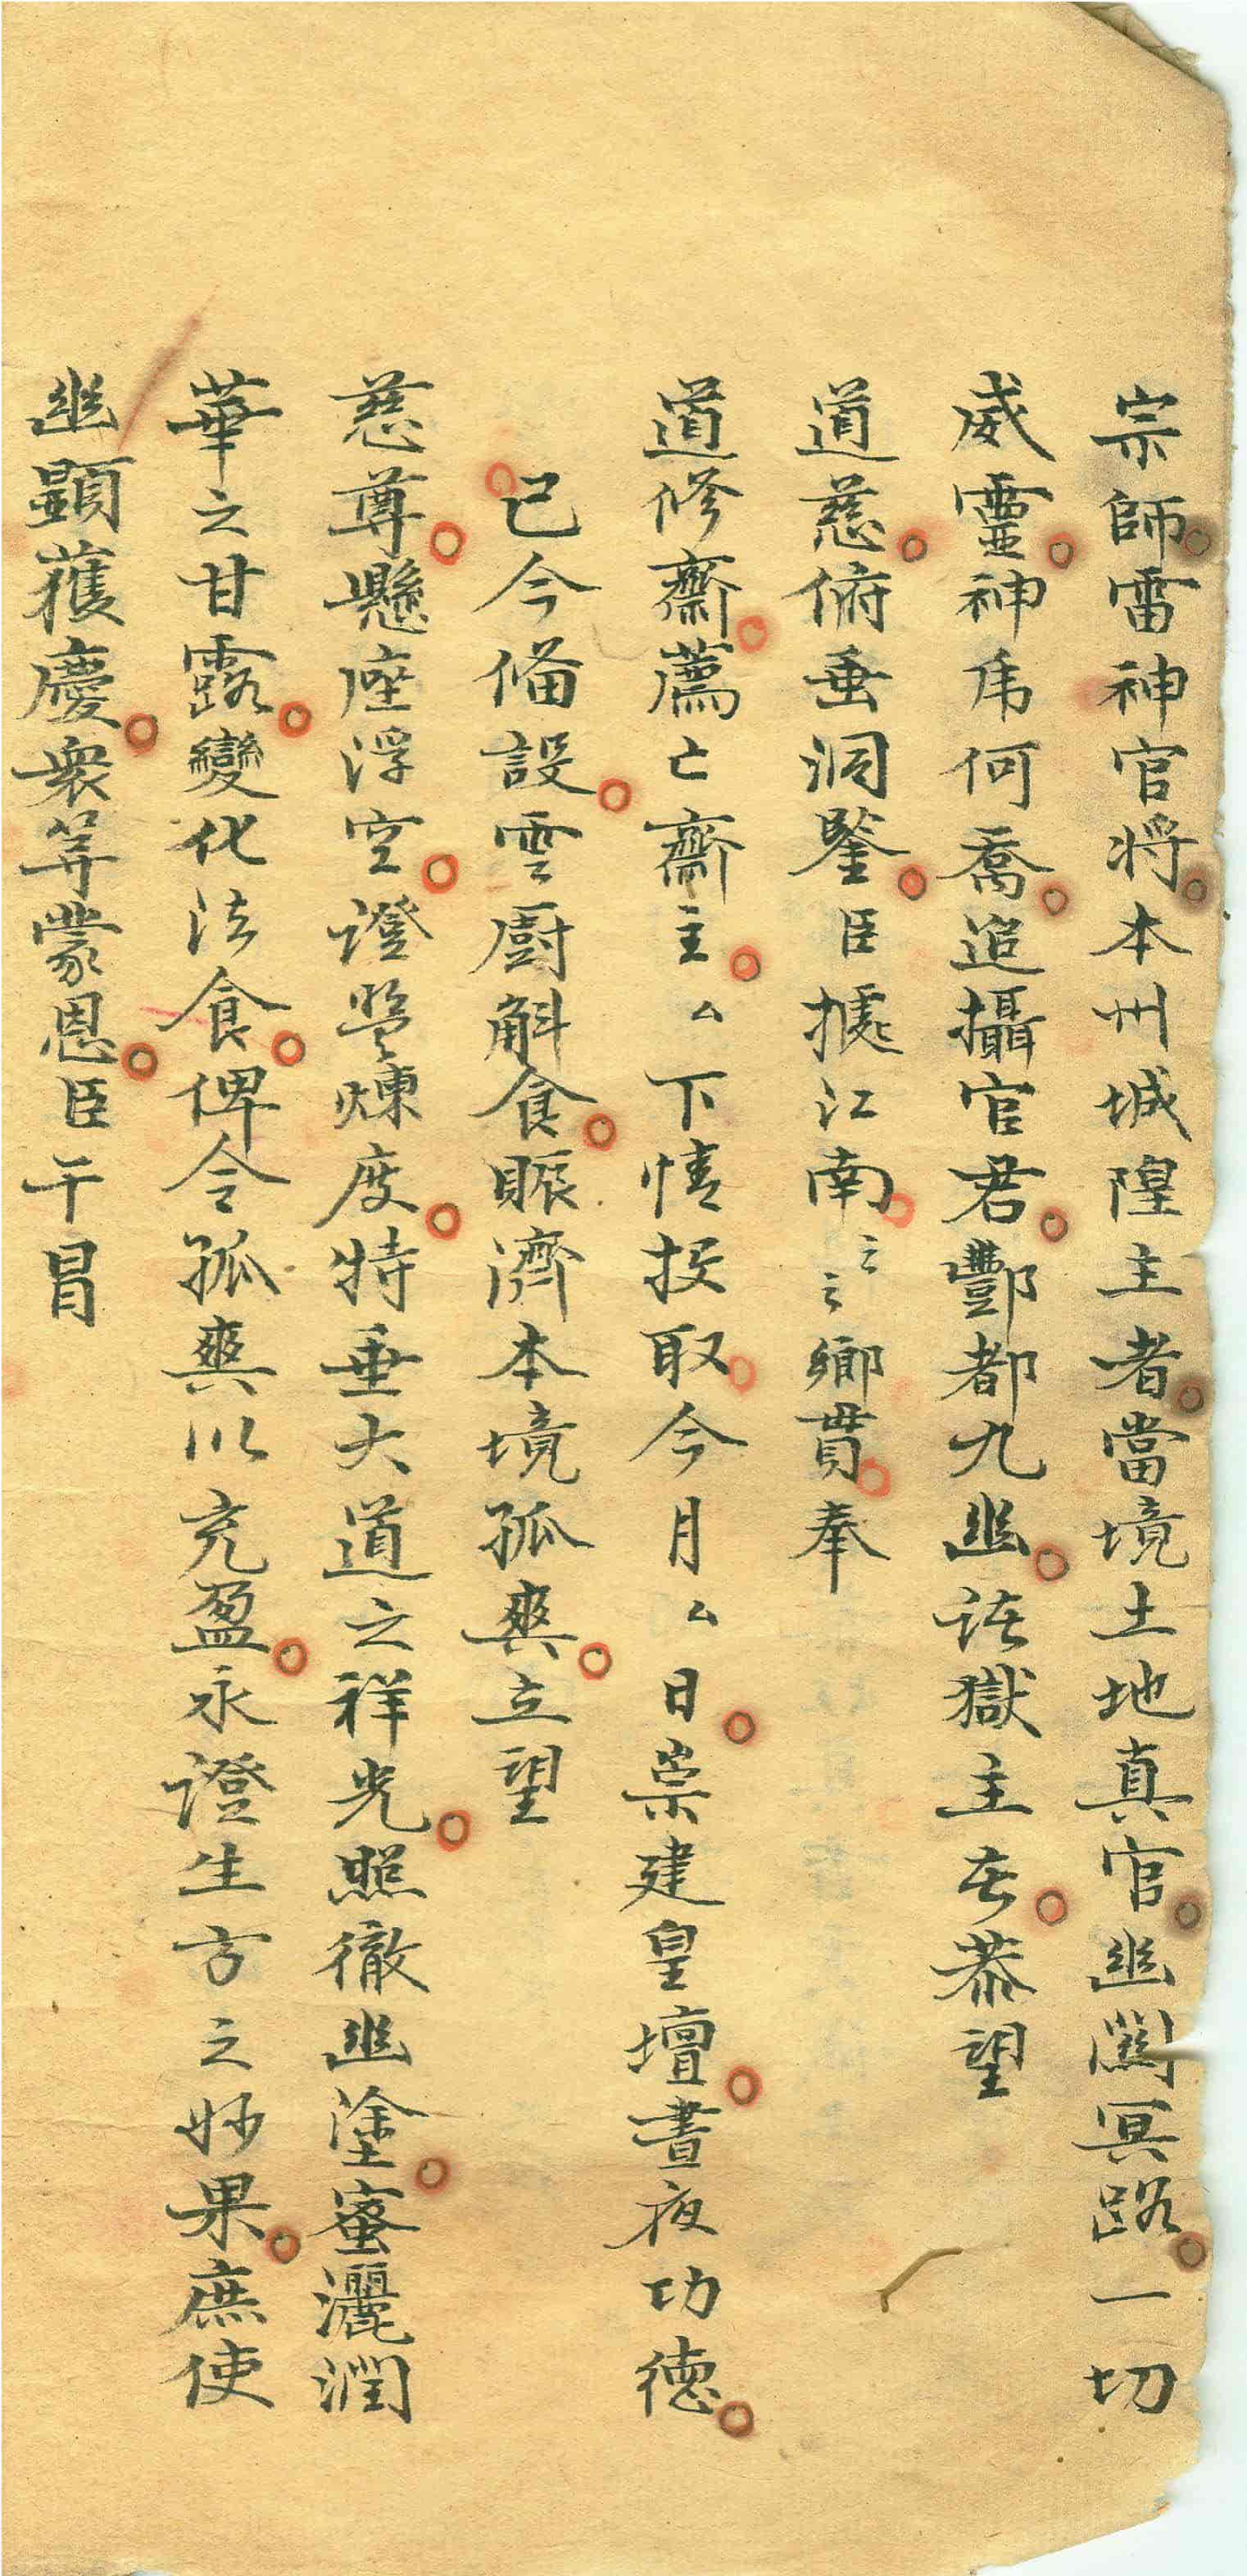 宗師雷神官将本州城隍主者當境土地真官幽關冥路一切
威靈神甬何喬追攝官君酆都九幽諸獄主者恭望
道慈俯垂洞鑒臣據江南云云鄉貫奉
道修齋薦亡齋主厶下情投取今月厶日崇建皇壇晝夜功德
已今俻設雲廚斛食賑濟本境孤爽立望
慈尊懸座浮空證盟煉度特垂大道之祥光照徹幽塗蜜灑潤
華之甘露變化法食俾令孤爽以充盈永證生方之妙果庶使
幽顯獲慶衆等蒙恩臣干冒